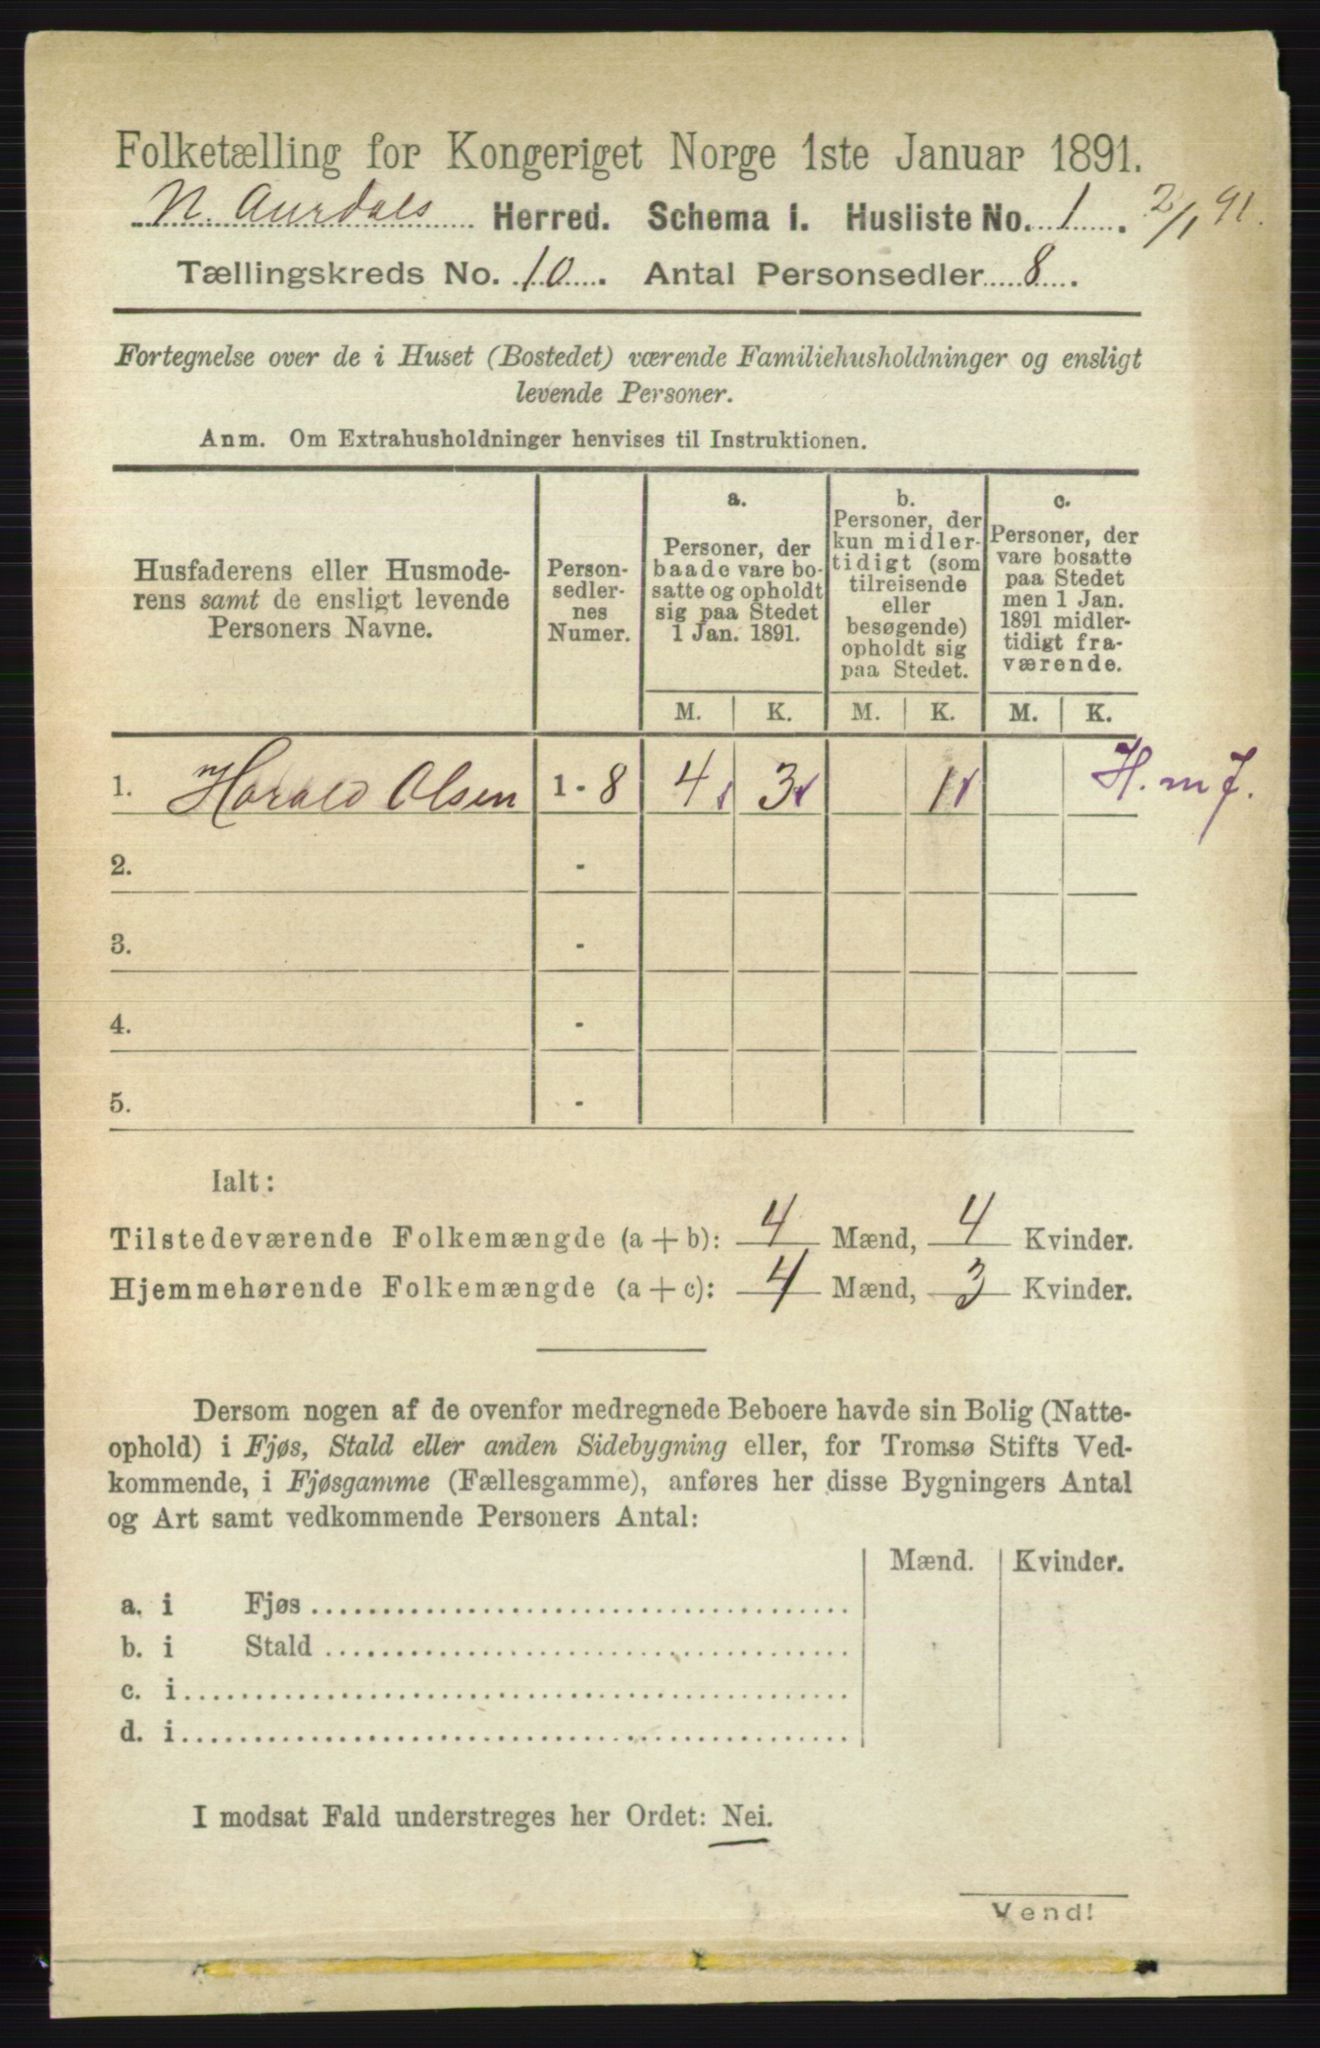 Folketælling for Kongeriget Norge 1ste Januar 1891.
N. Aurdals Herred. Schema I. Husliste No. 1. 2/1 91.
Tællingskreds No. 10. Antal Personsedler 8.
Fortegnelse over de i Huset (Bostedet) værende Familiehusholdninger og ensligt
levende Personer.
Anm. Om Extrahusholdninger henvises til Instruktionen.
Husfaderens eller Husmode-
rens samt de ensligt levende
Personers Navne.
Person-
sedler-
nes
Numer.
a.
Personer, der
baade vare bo-
satte og opholdt
sig paa Stedet
1 Jan. 1891.
b.
Personer, der
kun midler-
tidigt (som
tilreisende
eller
besøgende)
opholdt sig
paa Stedet.
c.
Personer, der
vare bosatte
paa Stedet
men 1 Jan.
1891 midler-
tidigt fra-
værende.
M. K. M. K. M. K.
1. Harald Olsen 1 - 8 4 3 1 H. m J.
2. -
3. -
4. -
5. -
Ialt:
Tilstedeværende Folkemængde (a + b): 4 Mænd, 4 Kvinder.
Hjemmehørende Folkemængde (a + c): 4 Mænd, 3 Kvinder.
Dersom nogen af de ovenfor medregnede Beboere havde sin Bolig (Natte-
ophold) i Fjøs, Stald eller anden Sidebygning eller, for Tromsø Stifts Ved-
kommende, i Fjøsgamme (Fællesgamme), anføres her disse Bygningers Antal
og Art samt vedkommende Personers Antal:
Mænd. Kvinder.
a. i Fjøs
b. i Stald
c. i
d. i
I modsat Fald understreges her Ordet: Nei.
Vend!